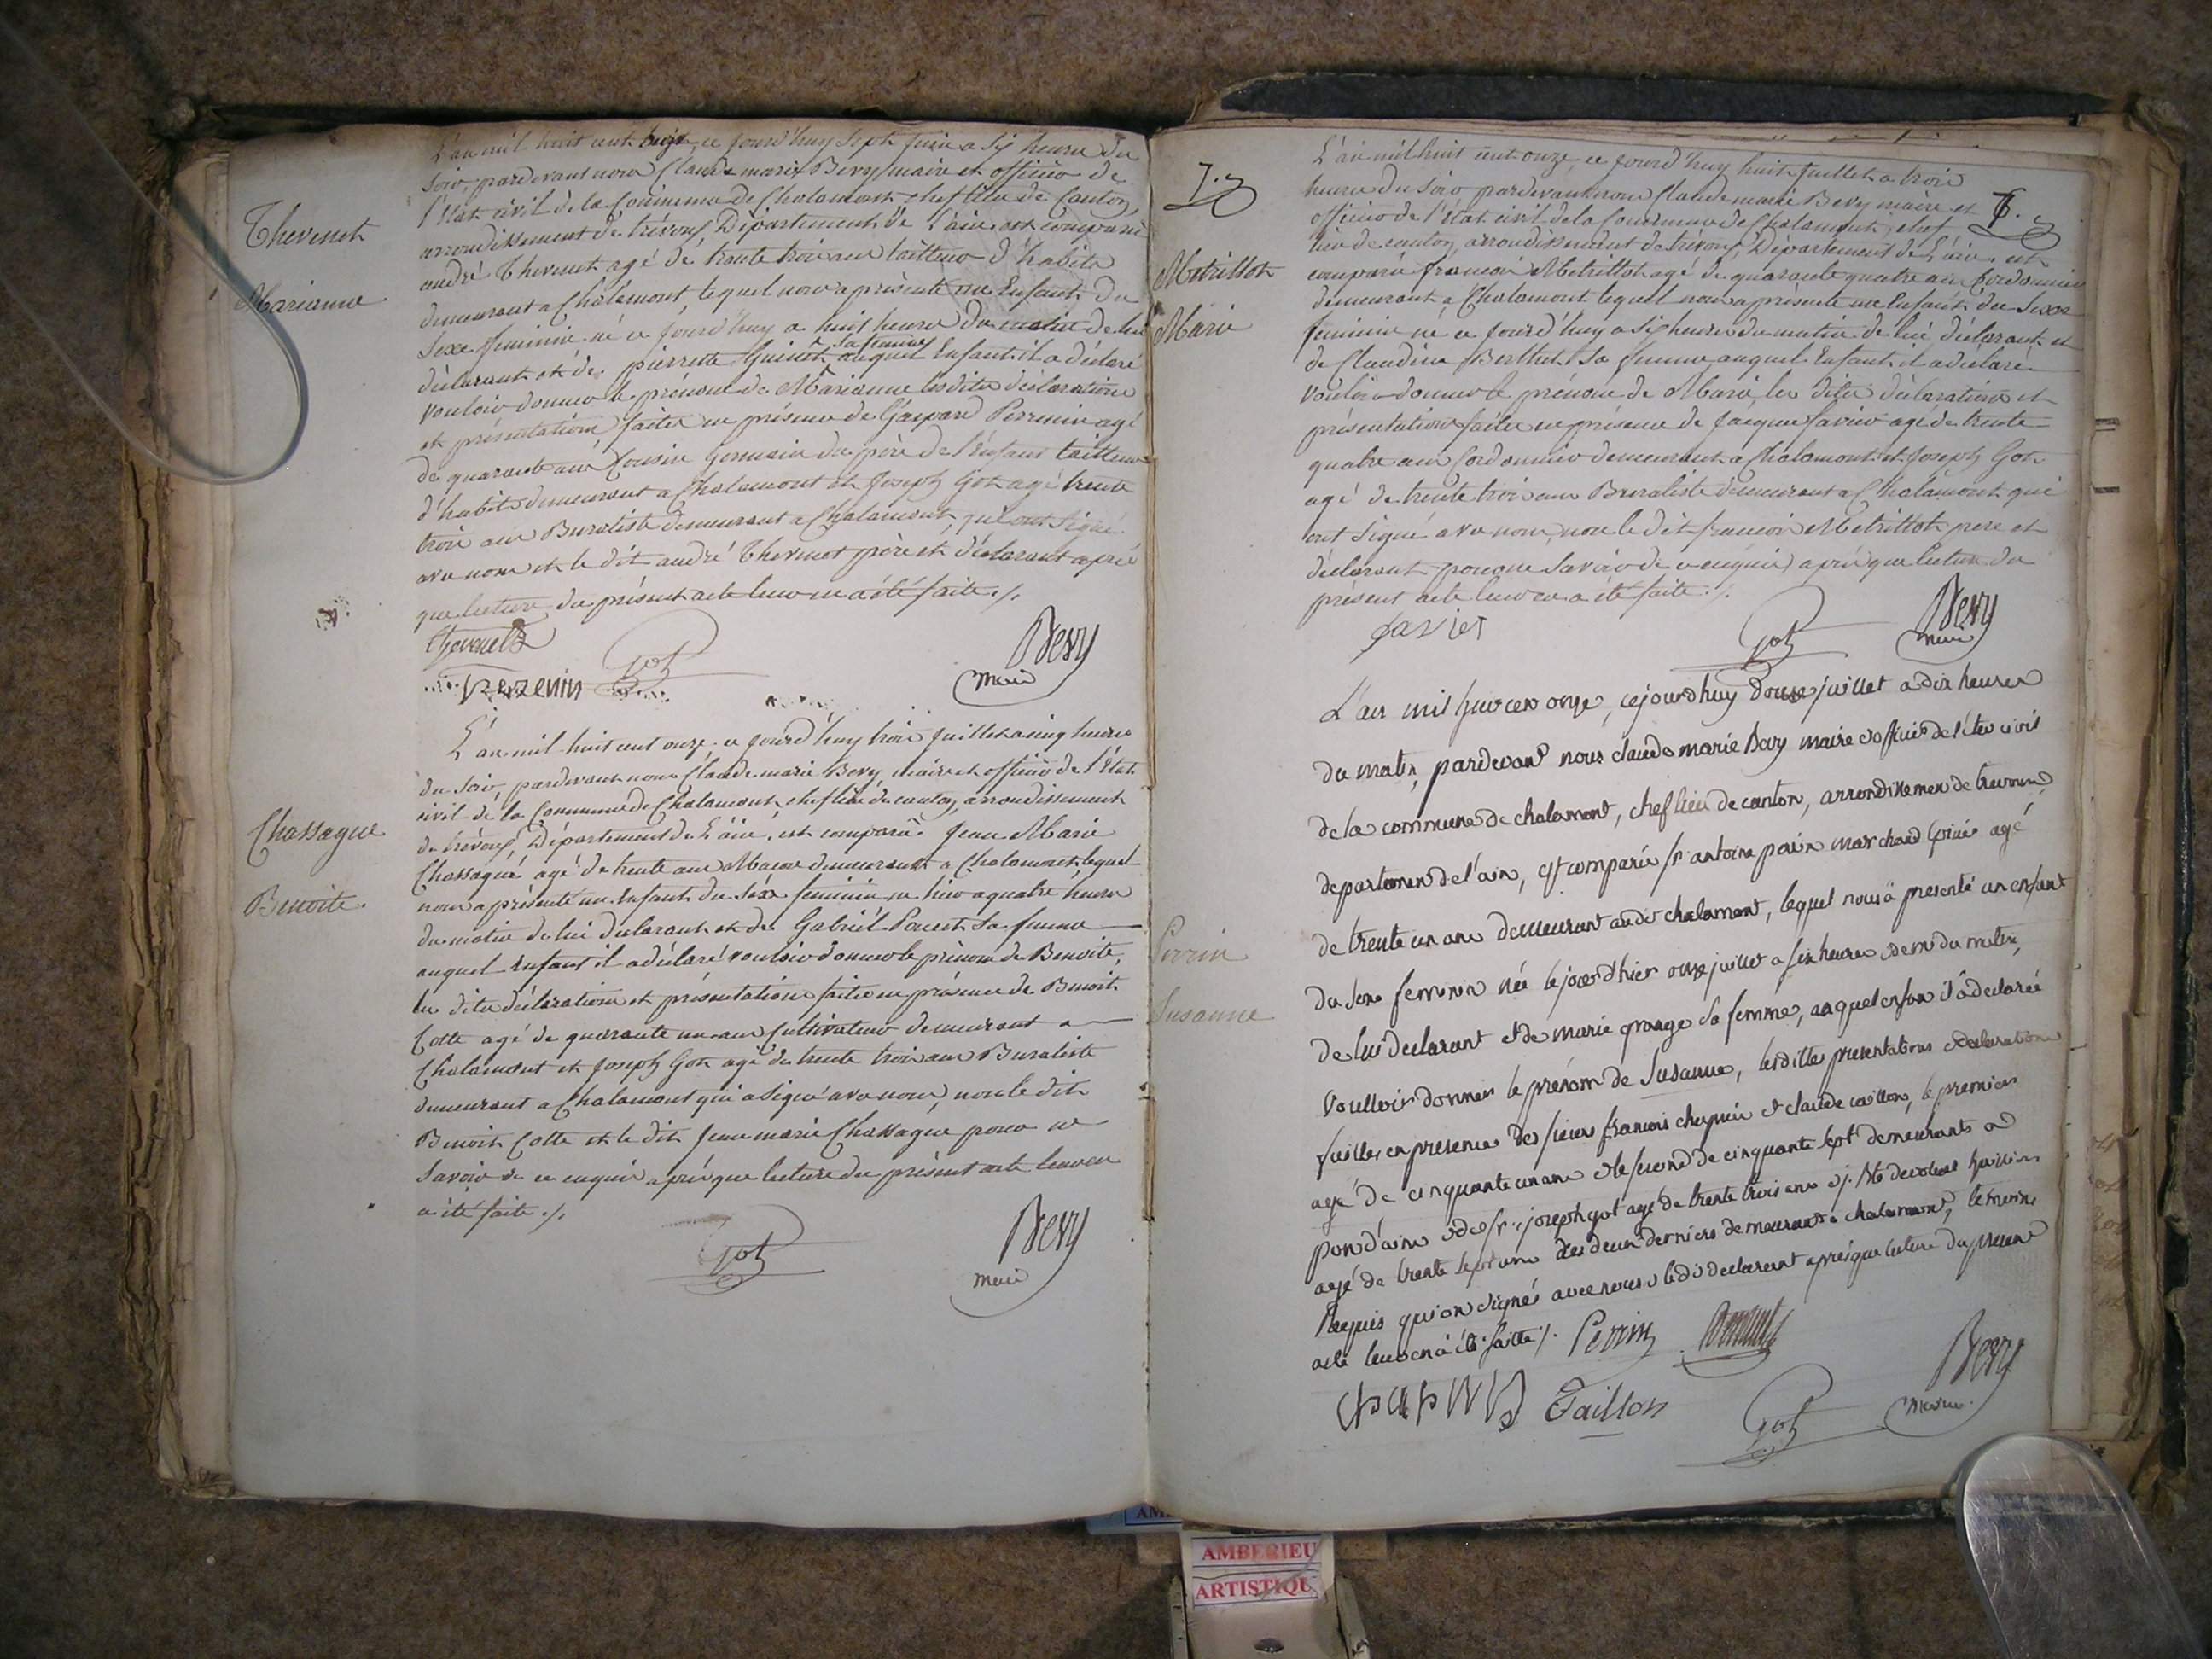 Thevenet
Marianne
L'an mil huit cent onze, ce jourd'huy sept juin a six heures du
soir, pardevant nous Claude marie Bevy maire et officier de
l'Etat civil de la Commune de Chalamont chef lieu de Canton,
arrondissement de trévoux Département de l'ain est comparu
andré Thevenet agé de trente trois ans tailleur d'habits
demeurant a Chalamont lequel nous a présenté un Enfant du
sexe feminin né ce jourd'huy a huit heures du matin de lui
déclarant et de pierrette Guinet sa femme auquel Enfant il a déclaré
vouloir donner le prénom de Marianne lesdites déclaration
et présentation faites en présence de Gaspard Perrenin agé
de quarante ans Cousin Germain du père de l'enfant tailleur
d'habits demeurant a Chalamont et Joseph Got agé trente
trois ans Buraliste demeurant a Chalamont, qui ont signé
avec nous et le dit andré Thevenet père et déclarant après
que lecture du présent acte leur en a été faite ./.
thevenet
perrenin Got Bevy
maire
Chassagne
Benoite.
L'an mil huit cent onze ce jourd'huy trois juillet a cinq heures
du soir, pardevant nous Claude marie Bevy, maire et officier de l'Etat
civil de la Commune de Chalamont, chef lieu de canton, arrondissement
de trévoux, Département de L'ain, est comparu Jean Marie
Chassagne agé de trente ans Maçon demeurant a Chalamont lequel
nous a présenté un Enfant du sexe feminin né hier a quatre heures
du matin de lui déclarant et de Gabriel sa femme
auquel Enfant il a déclaré vouloir donner le prénom de Benoite,
les dites déclaration et présentation faites en présence de Benoit
Cotte agé de quarante un ans Cultivateur demeurant a
Chalamont et Joseph Got agé de trente trois ans Buraliste
demeurant a Chalamont qui a signé avec nous, non le dit
Benoit Cotte et le dit Jean marie Chassagne pour ne
savoir de ce enquis après que lecture du présent acte leur en
a été faite ./.
Got Bevy
maire
7.
6.
Metrillot
Marie
L'an mil huit cent onze, ce jourd'huy huit juillet a trois
heures du soir pardevant nous Claude marie Bevy maire et
officier de l'état civil de la Commune de Chalamont, chef
lieu de canton, arrondissement de trévoux, Département de L'ain, est
comparu françois Metrillot agé de quarante quatre ans Cordonnier
demeurant a Chalamont lequel nous a présenté un Enfant du Sexe
feminin né ce jourd'huy a six heures du matin de lui déclarant et
de Claudine Berthet sa femme auquel Enfant il a déclaré
vouloir donner le prénom de Marie, les dites déclaration et
présentation faites en présence de Jacques favier agé de trente
quatre ans Cordonnier demeurant a Chalamont et Joseph Got
agé de trente trois ans Buraliste demeurant a Chalamont qui
ont signé avec nous, non le dit françois Metrillot père et
déclarant pour ne savoir de ce enquis après que lecture du
présent acte leur en a été faite ./.
favier Got Bevy
maire
Perrin
Susanne
L'an mil huit cent onze, cejourdhuy douze juillet a dix heures
du matin, pardevant nous claude marie Bevy maire et officier de l'état civil
de la commune de chalamont, chef lieu de canton, arrondissement de trevoux
departement de l'ain, est comparu sr antoine perin marchand agé
de trente un ans demeurant audit chalamont, lequel nous a presenté un enfant
du sexe feminin née le jour d'hier onze juillet a six heures et demi du matin,
de lui declarant et de marie grange sa femme, auquel enfan il a declarée
voulloir donner le prénom de Susanne, lesdittes presentations et declaration
faittes en presence des sieurs francois chapuis et claude caillon, le premier
agé de cinquante un ans et le second de cinquante sept demeurants a
pont d'ain et de sr joseph got agé de trente trois ans et
agé de trente sept ans les deux derniers demeurants a chalamont, temoins
requis qui on signés avec nous et le dit declarant apres que lecture du present
acte leur en a été faitte ./. Perrin
chapuis Caillon Got Bevy
maire
AMBERIEU
ARTISTIQU